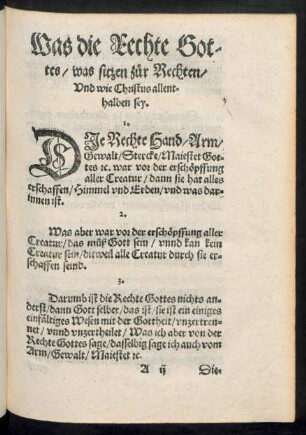 Was die Rechte Got-
tes/ was sitzen zůr Rechten/
Vnd wie Christus allent-
halben sey.
1.
DJe Rechte Hand/ Arm/
Gewalt/ Stercke/ Maiestet Got-
tes ꝛc. war vor der erschöpffung
aller Creatur/ dann sie hat alles
erschaffen/ Himmel vnd Erden/ vnd was dar-
innen ist.
2.
Was aber war vor der erschöpffung aller
Creatur/ das můß Gott sein/ vnnd kan kein
Creatur sein/ dieweil alle Creatur durch sie er-
schaffen seind.
3.
Darumb ist die Rechte Gottes nichts an-
derst/ dann Gott selber/ das ist/ sie ist ein einiges
einfältiges Wesen mit der Gottheit/ vnzertren-
net/ vnnd vnzertheilet/ Was ich aber von der
Rechte Gottes sage/ dasselbig sage ich auch vom
Arm/ Gewalt/ Maiestet ꝛc.
A ij Die-